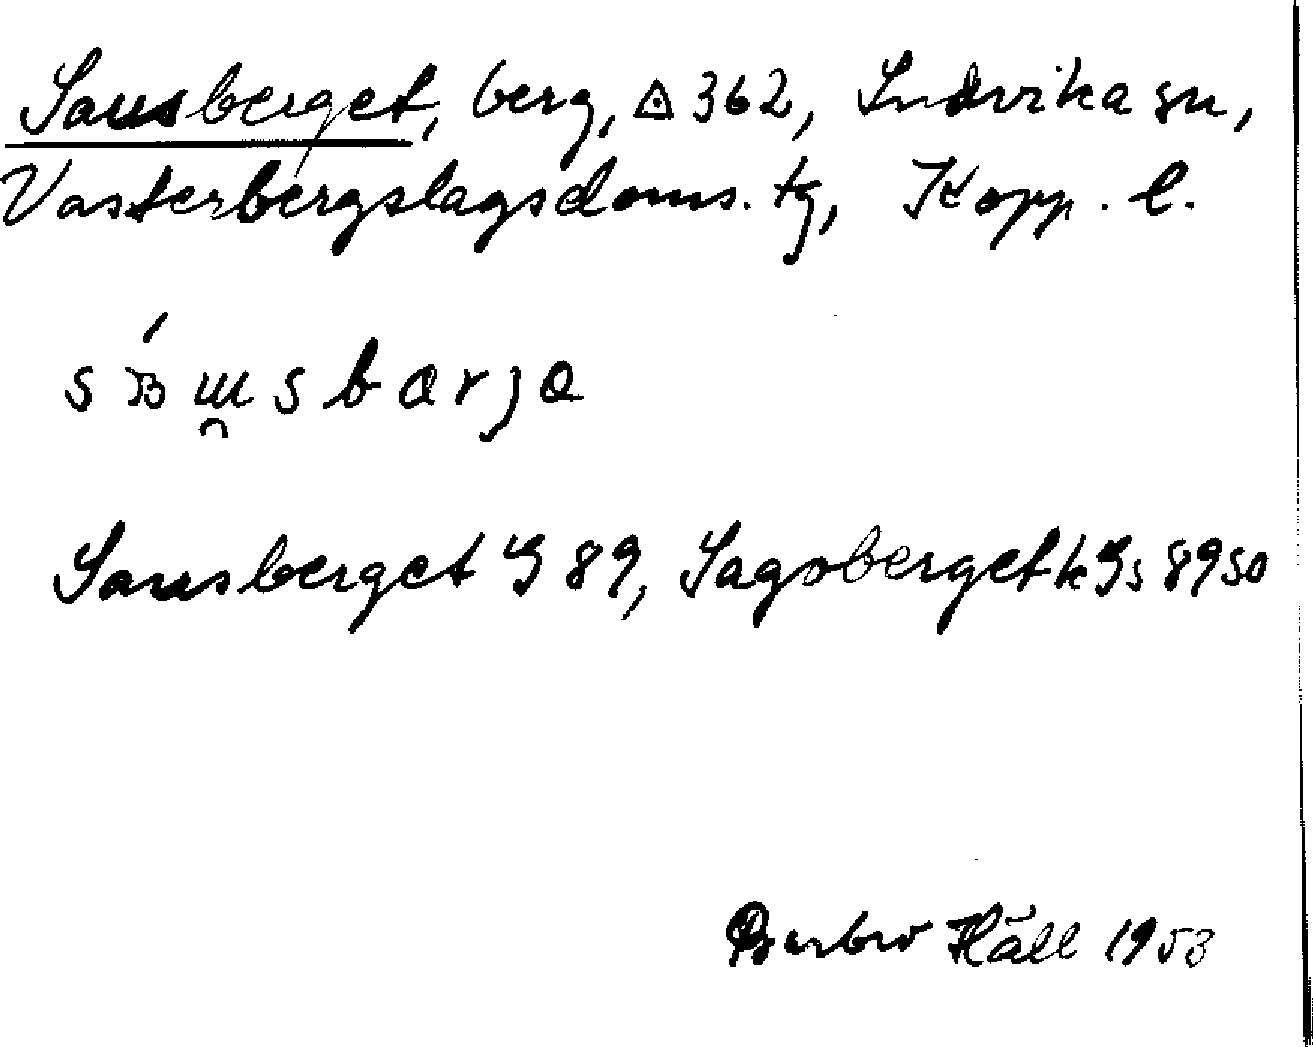 Sausberget, berg, △ 362, Ludvika sn,
Västerbergslags doms. tg, Kopp. l.
Sausberget G 89, Sagoberget k Gs 89 SO
Barbro Häll 1953